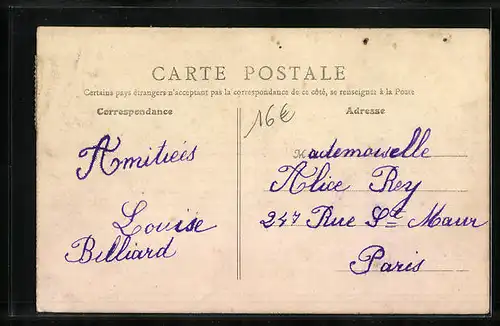 CARTE POSTALE
Certains pays étrangers n'acceptant pas la correspondance de ce côté, se renseigner à la Poste
Correspondance
Adresse
16€
Amitiées
Louise
Billiard
Mademoiselle
Alice Rey
247 Rue St Maur
Paris